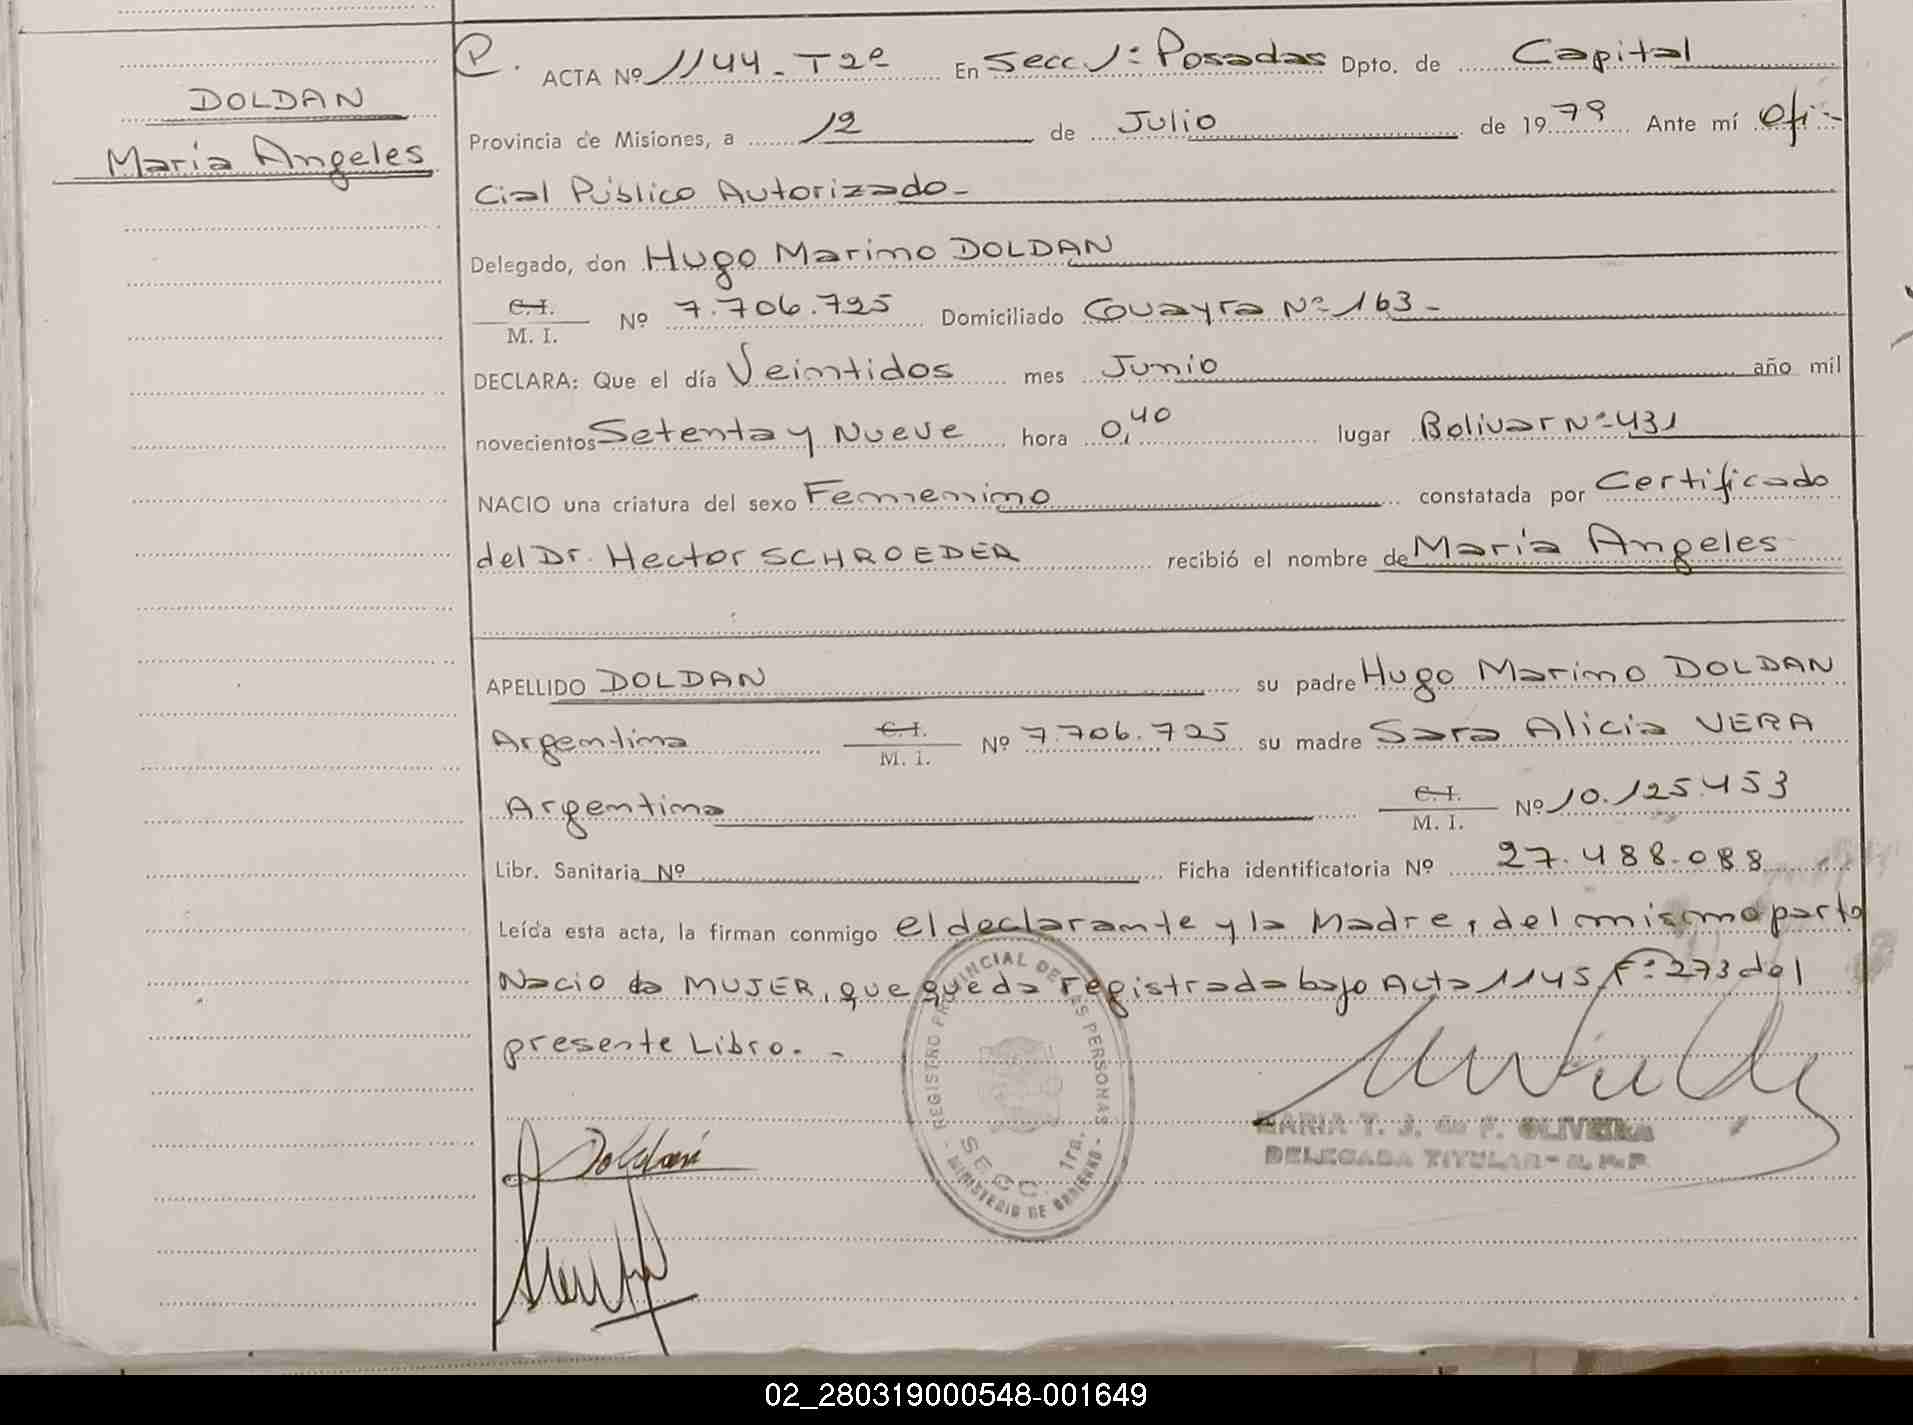 DOLDAN
Maria Angeles
P. ACTA Nº 1144 - T2º En Secc 1ª Posadas Dpto. de Capital
Provincia de Misiones, a 12 de Julio de 1979 Ante mí Ofi-
cial Público Autorizado-
Delegado, don Hugo Marino DOLDAN
C.I.
M. I. Nº 7.706.725 Domiciliado Couayra Nº 163-
DECLARA: Que el día Veintidos mes Junio año mil
novecientos Setenta y Nueve hora 0,40 lugar Bolivar Nº 431
NACIO una criatura del sexo Femenino constatada por Certificado
del Dr. Hector SCHROEDER recibió el nombre de Maria Angeles
APELLIDO DOLDAN su padre Hugo Marino DOLDAN
Argentina C.I.
M. I. Nº 7.706.725 su madre Sara Alicia VERA
Argentina C.I.
M. I. Nº 10.125.453
Libr. Sanitaria Nº Ficha identificatoria Nº 27.488.088
Leída esta acta, la firman conmigo el declarante y la Madre, del mismo parto
Nacio MUJER, que queda registrada bajo Acta 1145 Fº 273 del
presente Libro. -
REGISTRO PROVINCIAL DE LAS PERSONAS
SECC. 1ra.
- MINISTERIO DE GOBIERNO -
MARIA T. J. de F. OLIVEIRA
DELEGADA TITULAR - R. P. P.
Doldan
02_280319000548-001649